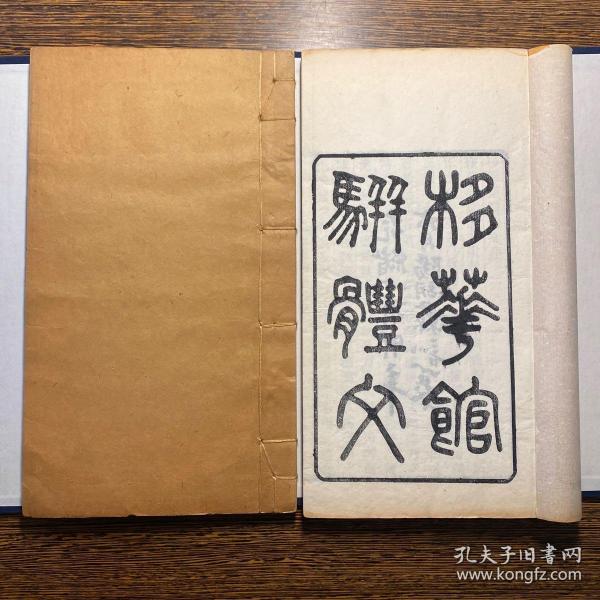 栘華館
駢體文
孔夫子旧书网
www.kongfz.com